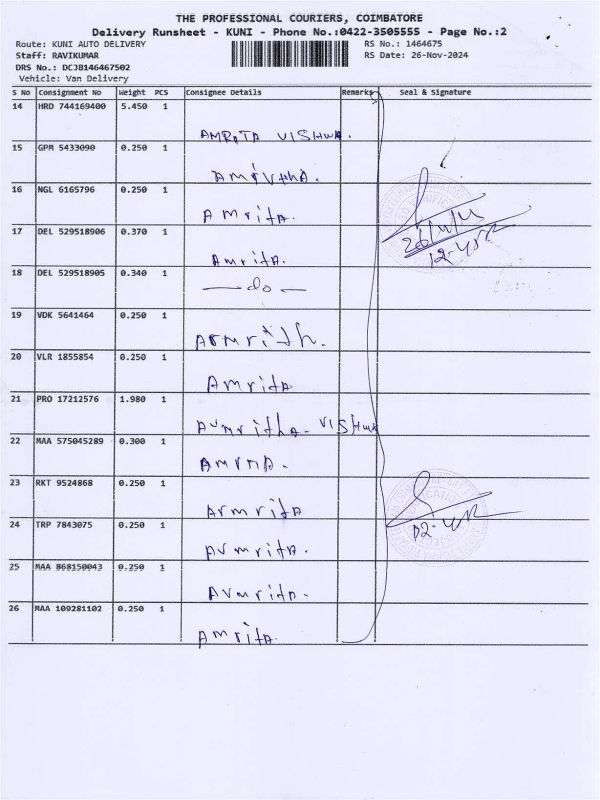 THE PROFESSIONAL COURIERS, COIMBATORE
Delivery Runsheet - KUNI - Phone No.:0422-3505555 - Page No.:2
Route: KUNI AUTO DELIVERY
RS No.: 1464675
Staff: RAVIKUMAR
RS Date: 26-Nov-2024
DRS No.: DCJB146467502
Vehicle: Van Delivery
S No Consignment No Weight PCS Consignee Details Remarks Seal & Signature
14 HRD 744169400 5.450 1
AMRATA VISHWA.
15 GPM 5433090 0.250 1
16 NGL 6165796 0.250 1
Amrita.
17 DEL 529518906 0.370 1
Amrita.
18 DEL 529518905 0.340 1
— do —
19 VDK 5641464 0.250 1
20 VLR 1855854 0.250 1
Amrita
21 PRO 17212576 1.980 1
22 MAA 575045289 0.300 1
23 RKT 9524868 0.250 1
Armrita
24 TRP 7843075 0.250 1
Avmrita.
25 MAA 868150043 0.250 1
Avmrita.
26 MAA 109281102 0.250 1
Amrita.